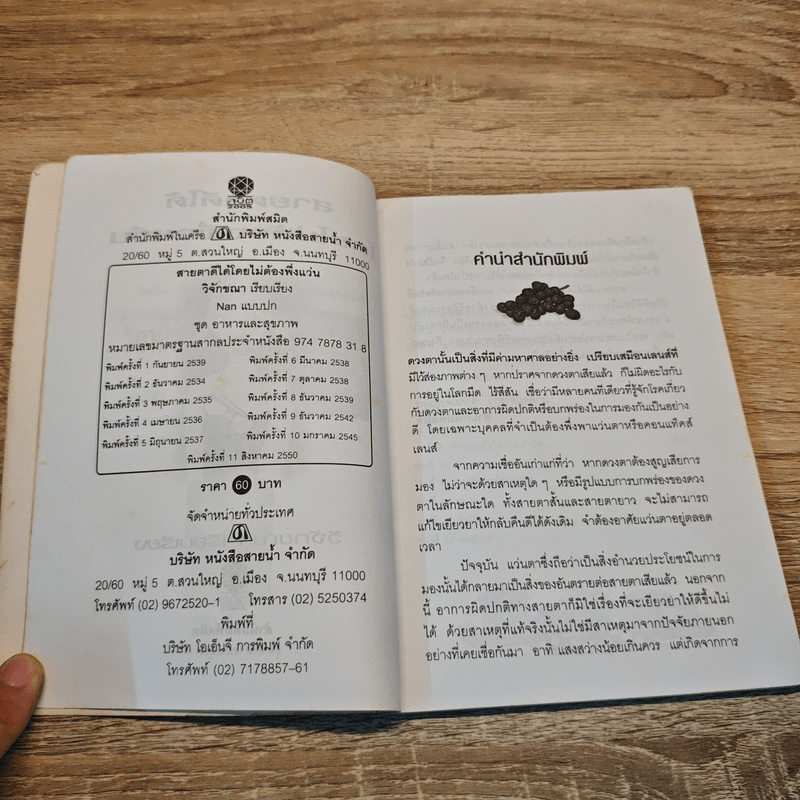 สมิต
2005
สำนักพิมพ์สมิต
สำนักพิมพ์ในเครือ บริษัท หนังสือสายน้ำ จำกัด
20/60 หมู่ 5 ต.สวนใหญ่ อ.เมือง จ.นนทบุรี 11000
สายตาดีได้โดยไม่ต้องพึ่งแว่น
วิจักขณา เรียบเรียง
Nan แบบปก
ชุด อาหารและสุขภาพ
หมายเลขมาตรฐานสากลประจำหนังสือ 974 7878 31 8
พิมพ์ครั้งที่ 1 กันยายน 2539
พิมพ์ครั้งที่ 2 ธันวาคม 2534
พิมพ์ครั้งที่ 3 พฤษภาคม 2535
พิมพ์ครั้งที่ 4 เมษายน 2536
พิมพ์ครั้งที่ 5 มิถุนายน 2537
พิมพ์ครั้งที่ 6 มีนาคม 2538
พิมพ์ครั้งที่ 7 ตุลาคม 2538
พิมพ์ครั้งที่ 8 ธันวาคม 2539
พิมพ์ครั้งที่ 9 ธันวาคม 2542
พิมพ์ครั้งที่ 10 มกราคม 2545
พิมพ์ครั้งที่ 11 สิงหาคม 2550
ราคา 60 บาท
จัดจำหน่ายทั่วประเทศ
บริษัท หนังสือสายน้ำ จำกัด
20/60 หมู่ 5 ต.สวนใหญ่ อ.เมือง จ.นนทบุรี 11000
โทรศัพท์ (02) 9672520-1 โทรสาร (02) 5250374
พิมพ์ที่
บริษัท โอเอ็นจี การพิมพ์ จำกัด
โทรศัพท์ (02) 7178857-61
คำนำสำนักพิมพ์
ดวงตานั้นเป็นสิ่งที่มีค่ามหาศาลอย่างยิ่ง เปรียบเสมือนเลนส์ที่
มีไว้ส่องภาพต่าง ๆ หากปราศจากดวงตาเสียแล้ว ก็ไม่ผิดอะไรกับ
การอยู่ในโลกมืด ไร้สีสัน เชื่อว่ามีหลายคนทีเดียวที่รู้จักโรคเกี่ยว
กับดวงตาและอาการผิดปกติหรือบกพร่องในการมองกันเป็นอย่าง
ดี โดยเฉพาะบุคคลที่จำเป็นต้องพึ่งพาแว่นตาหรือคอนแท็คส์
เลนส์
จากความเชื่ออันเก่าแก่ที่ว่า หากดวงตาต้องสูญเสียการ
มอง ไม่ว่าจะด้วยสาเหตุใด ๆ หรือมีรูปแบบการบกพร่องของดวง
ตาในลักษณะใด ทั้งสายตาสั้นและสายตายาว จะไม่สามารถ
แก้ไขเยียวยาให้กลับคืนดีได้ดังเดิม จำต้องอาศัยแว่นตาอยู่ตลอด
เวลา
ปัจจุบัน แว่นตาซึ่งถือว่าเป็นสิ่งอำนวยประโยชน์ในการ
มองนั้นได้กลายมาเป็นสิ่งของอันตรายต่อสายตาเสียแล้ว นอกจาก
นี้ อาการผิดปกติทางสายตาก็มิใช่เรื่องที่จะเยียวยาให้ดีขึ้นไม่
ได้ ด้วยสาเหตุที่แท้จริงนั้นไม่ใช่มีสาเหตุมาจากปัจจัยภายนอก
อย่างที่เคยเชื่อกันมา อาทิ แสงสว่างน้อยเกินควร แต่เกิดจากการ